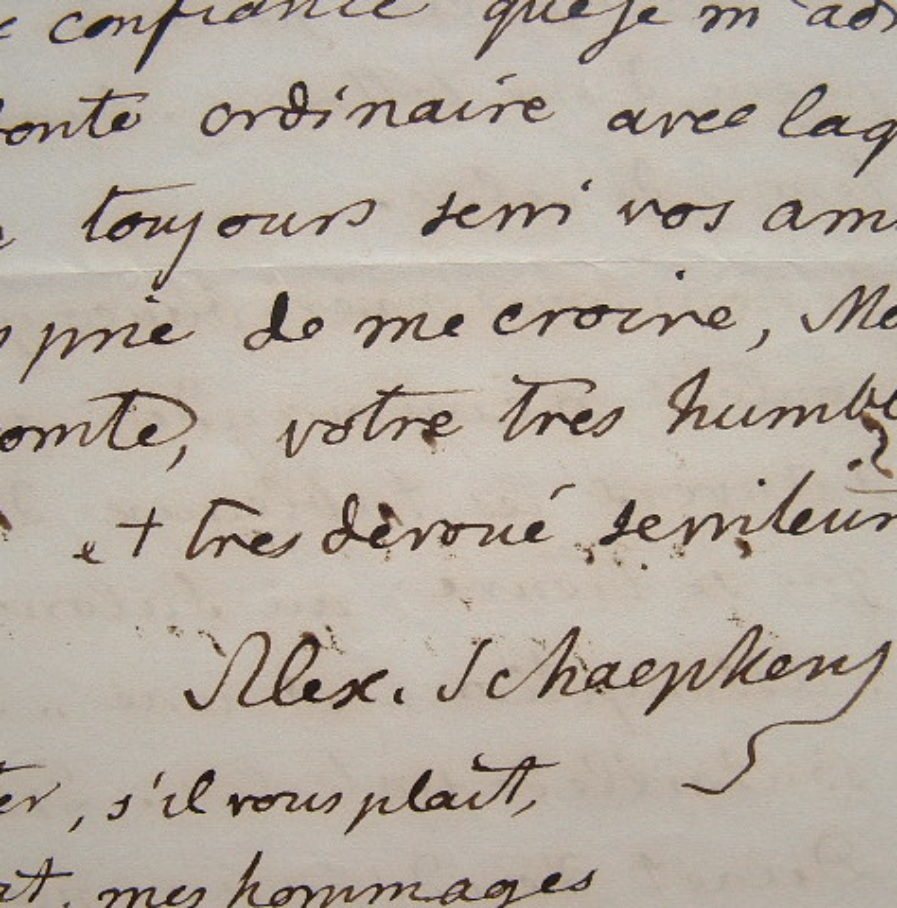 confiance que je m'ad
onté ordinaire avec laq
toujours servi vos am
prie de me croire, Mo
omte, votre tres humble
et tres devoué serviteur
Alex. Schaepkens
er, s'il vous plait,
at, mes hommages